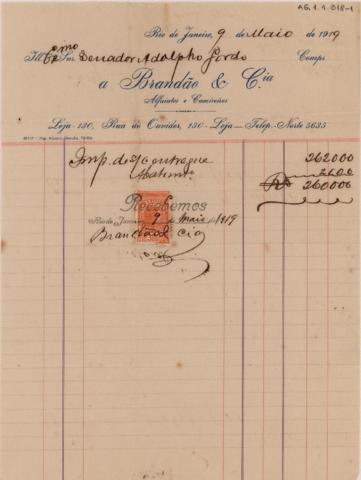 AG.1.4.018-1
Rio de Janeiro, 9 de Maio de 1919
Ill.mo Ex.mo Snr. Senador Adolpho Gordo Comps
a Brandão & C.ia
Alfaiates e Camiseiros
Loja-130, Rua do Ouvidor, 130-Loja — Telep.-Norte 5635
Imp. de s/ Contra entregue 262000
Abatim.to 2000
Rs 260000
Recebemos
Rio de Janeiro 9 de Maio 1919
Brandão & Cia